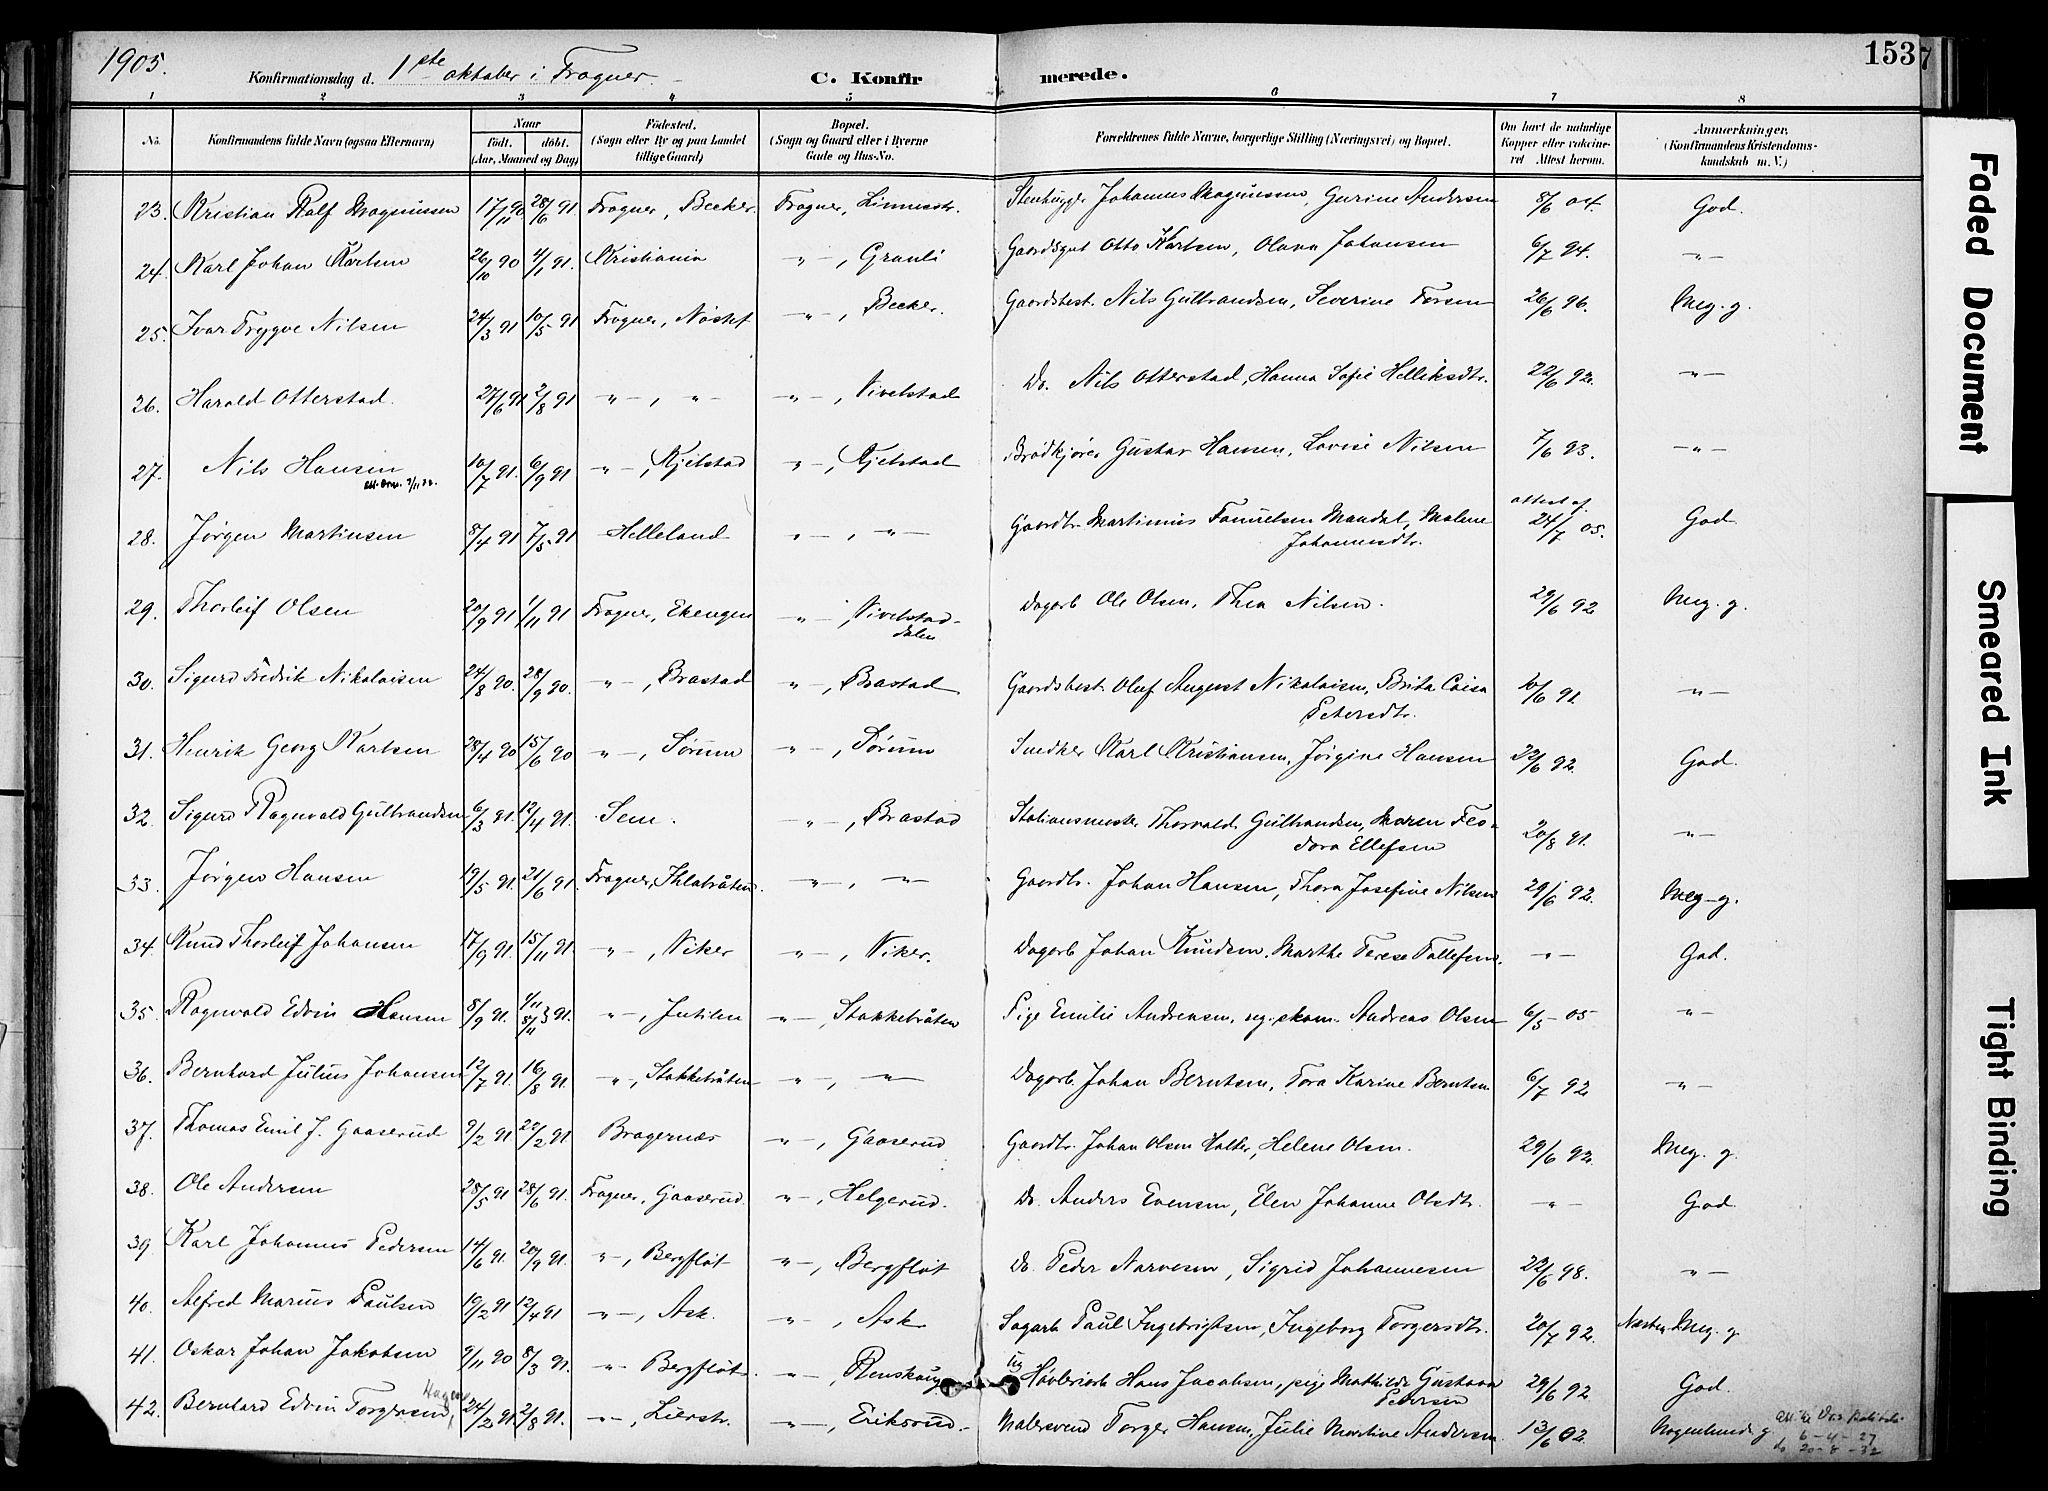 1905.
Konfirmationsdag d. 1ste oktober i Frogner.
C. Konfirmerede.
153
7
1 2 3 4 5 6 7 8
No.
Konfirmandens fulde Navn (ogsaa Efternavn)
Naar
født. døbt.
(Aar, Maaned og Dag)
Fødested.
(Sogn eller By og paa Landet
tillige Gaard)
Bopæl.
(Sogn og Gaard eller i Byerne
Gade og Hus-No.
Forældrenes fulde Navne, borgerlige Stilling (Næringsvei) og Bopæl.
Om havt de naturlige
Kopper eller vakcine-
ret Attest herom.
Anmærkninger.
(Konfirmandens Kristendoms-
kundskab m. V.)
23. Kristian Rolf Magnussen 17/11 90 28/6 91 Frogner, Becker. Frogner, Linnesstr. Stenhugger Johannes Magnussen, Gurine Andersen 8/6 04. God.
24. Karl Johan Karlsen 26/10 90 4/1 91. Kristiania -"-, Granli Gaardsgut Otto Karlsen, Olava Johansen 6/7 94. -"-
25. Ivar Trygve Nilsen 24/3 91 10/5 91 Frogner, Nøstet -"-, Becker. Gaardsbest. Nils Gulbrandsen, Severine Torsen 26/6 96. Meg. g.
26. Harald Otterstad. 27/6 91 2/8 91 -"-, -"- -"-, Vivelstad Do. Nils Otterstad, Hanna Sofie Helliksdtr. 22/6 92. -"-
27. Nils Hansen 10/7 91. 6/9 91 -"-, Kjelstad -"-, Kjelstad Brødkjører Gustav Hansen, Lovise Nilsen 7/6 93. -"-
28. Jørgen Martinsen 8/4 91 7/5 91 Helleland -"-, -"- Gaardbr. Martinius Mandal, Malene
Johannesdtr. attest af
24/7 05. God
29. Thorleif Olsen 20/9 91 1/11 91 Frogner, Ekengen -"-, Vivelstad-
dalen Dagarb. Ole Olsen, Thea Nilsen. 29/6 92 Meg. g.
30. Sigurd Fredrik Nikolaisen 24/8 90. 28/9 90. -"-, Brastad -"-, Brastad Gaardsbest. Oluf August Nikolaisen, Brita Caisa
Petersdtr. 10/6 91. -"-
31. Henrik Georg Karlsen 28/4 90 15/6 90 -"-, Sørum -"-, Sørum Snedker Karl Kristiansen, Jørgine Hansen 22/6 92. God.
32. Sigurd Ragnvald Gulbrandsen 6/3 91. 12/4 91. Sem. -"-, Brastad Stationsmester Thorvald Gulbrandsen, Maren Feo-
dora Ellefsen 20/8 91. -"-
33. Jørgen Hansen 19/5 91. 21/6 91. Frogner, -"-, -"- Gaardbr. Johan Hansen, Thora Josefine Nilsen 29/6 92. Meg. g.
34. Knud Thorleif Johansen 17/9 91. 15/11 91 -"-, Viker -"-, Viker. Dagarb. Johan Knudsen, Marthe Terese Tollefsen. -"- God.
35. Ragnvald Edvin Hansen 8/9 91. 1/11 8/11 91. -"-, Jutilen -"-, Stokkebråten Pige Emilie Andreasen, ug. skom. Andreas Olsen 6/5 05 -"-
36. Bernhard Julius Johansen 12/7 91. 16/8 91. -"-, Stokkebråten -"-, -"- Dagarb. Johan Berntsen, Tora Karine Berntsen 6/7 92 -"-
37. Thomas Emil J. Gaaserud 9/2 91 22/2 91 Bragernæs -"-, Gaaserud Gaardbr. Johan Olsen Holter, Helene Olsen. 29/6 92. Meg. g.
38. Ole Andersen 28/5 91 28/6 91. Frogner, Gaaserud. -"-, Helgerud. Do. Anders Evensen, Elen Johanne Olsdtr. -"- God.
39 Karl Johannes Pedersen 14/6 91. 20/9 91. -"-, Bergfløt -"-, Bergfløt Do. Peder Narvesen, Sigrid Johannesen 22/6 98. -"-
40. Alfred Marius Paulsen 19/2 91 12/4 91 -"-, Ask. -"-, Ask Sagarb. Paul Ingebrigtsen, Ingeborg Torgersdtr. 20/7 92. Næsten Meg. g
41. Oskar Johan Jakobsen 9/11 90 8/3 91. -"- Bergfløt. -"-, Renskaug ug Høvleriarb. Hans Jacobsen, pige Mathilde Gustava
Pedersen 29/6 92 God.
42. Bernhard Edvin Torgersen 24/2 91. 2/8 91. -"-, Lierstr. -"-, Eriksrud. Malersvend Torger Hansen, Julie Martine Andersen. 13/6 02. Nogenlunde g
6-4-27
do 20-8-32
Faded Document
Smeared Ink
Tight Binding